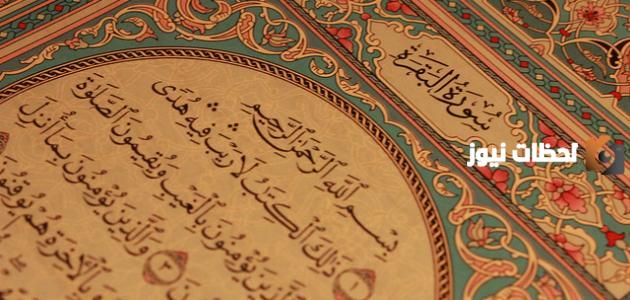 سُورَةُ البَقَرَةِ
لحظات نيوز
بِسْمِ اللَّهِ الرَّحْمَٰنِ الرَّحِيمِ
١ ذَٰلِكَ الْكِتَٰبُ لَا رَيْبَ فِيهِ هُدًى
الَّذِينَ يُؤْمِنُونَ بِالْغَيْبِ وَيُقِيمُونَ الصَّلَوٰةَ
٣ وَالَّذِينَ يُؤْمِنُونَ بِمَا أُنزِلَ
وَبِالْآخِرَةِ هُمْ يُوقِنُونَ